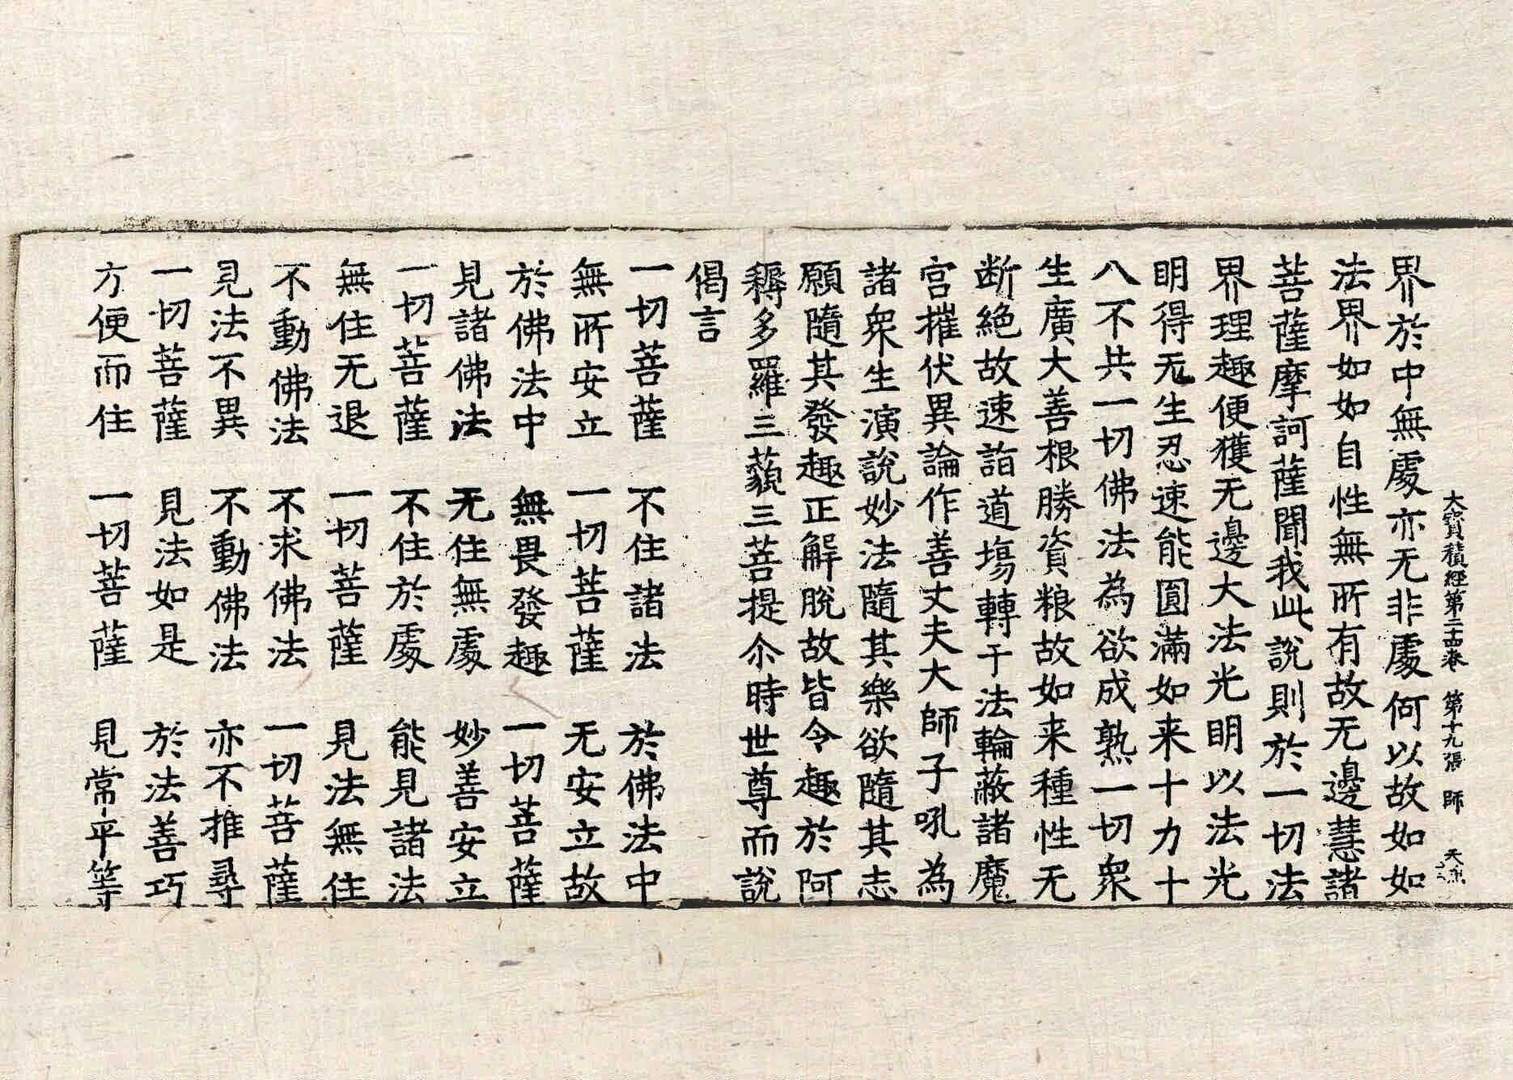 大寳積經第二十四卷 第十九張 師
界於中無處亦无非處何以故如如
法界如如自性無所有故无邊慧諸
菩薩摩訶薩聞我此說則於一切法
界理趣便獲无邊大法光明以法光
明得无生忍速能圓滿如来十力十
八不共一切佛法為欲成熟一切衆
生廣大善根勝資粮故如来種性无
断絕故速詣道場轉于法輪蔽諸魔
宫摧伏異論作善丈夫大師子吼為
諸衆生演說妙法隨其樂欲隨其志
願隨其發趣正解脫故皆令趣於阿
耨多羅三藐三菩提尒時世尊而說
偈言
一切菩薩 不住諸法 於佛法中
無所安立 一切菩薩 无安立故
於佛法中 無畏發趣 一切菩薩
見諸佛法 无住無處 妙善安立
一切菩薩 不住於處 能見諸法
無住无退 一切菩薩 見法無住
不動佛法 不求佛法 一切菩薩
見法不異 不動佛法 亦不推尋
一切菩薩 見法如是 於法善巧
方便而住 一切菩薩 見常平等